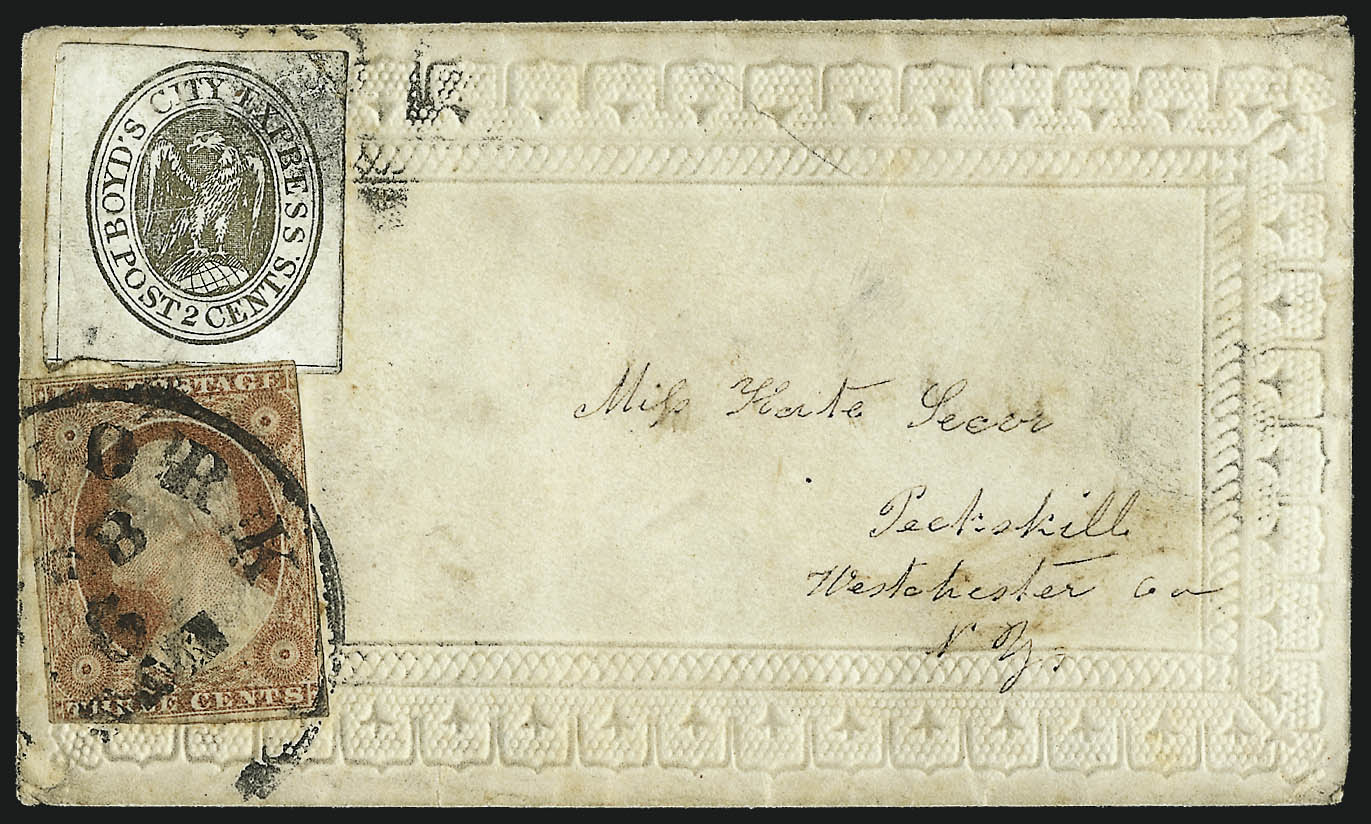 BOYD'S CITY EXPRESS.
POST 2 CENTS.
POSTAGE
THREE CENTS
YORK
Miss Kate Secor
Peekskill
Westchester Co
N Y.